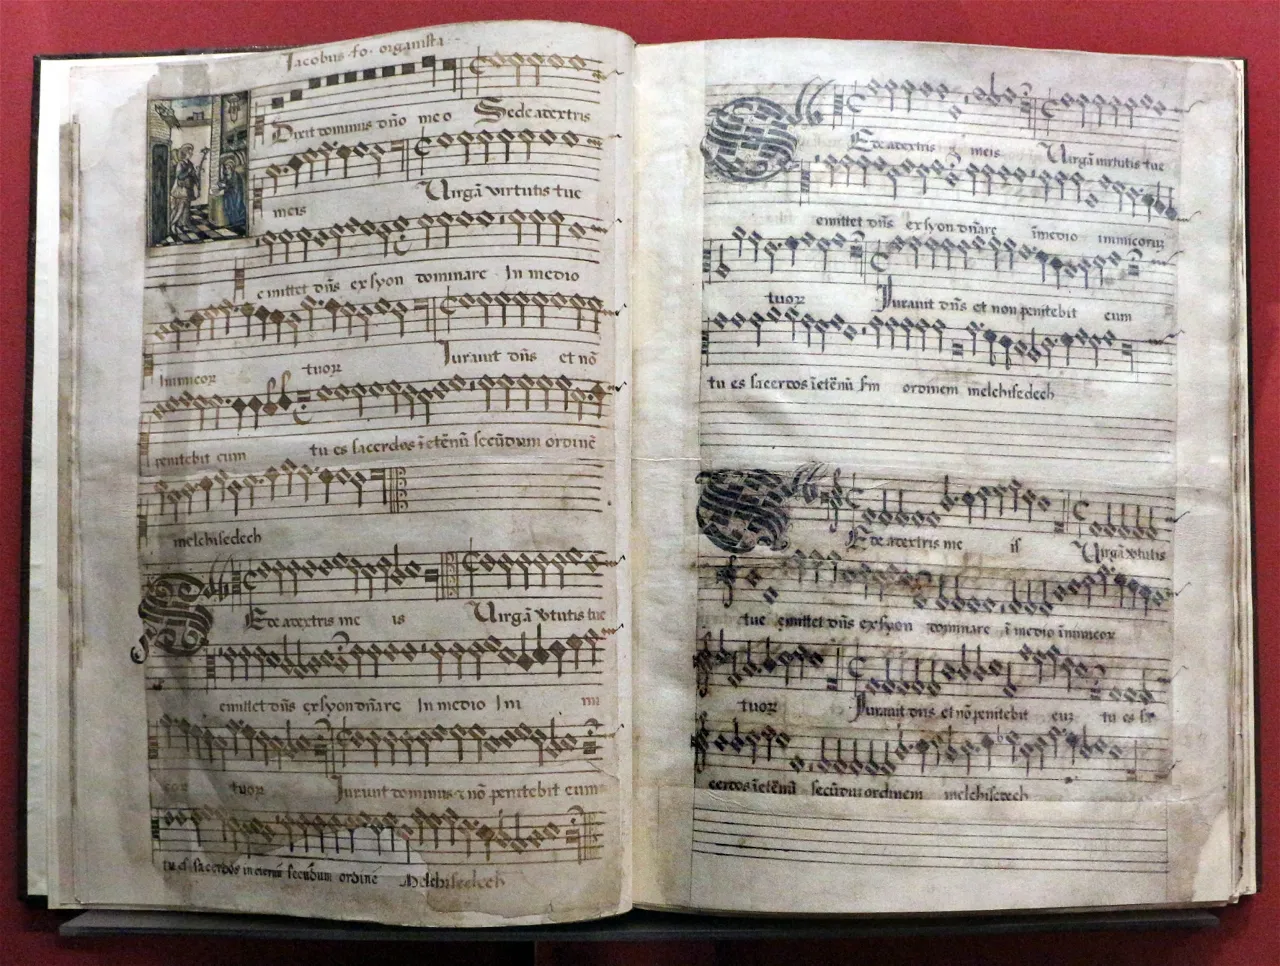 Jacobus fo. organista
Dixit dominus dño meo Sede adextris
meis Uirgã virtutis tue
emittet dñs ex syon dominare In medio
Inimicor tuoꝝ Iurauit dñs et nõ
penitebit eum tu es sacerdos ĩ etẽnũ secũdum ordinẽ
melchisedech
Ede adextris me is Uirgã vtutis tue
emittet dñs ex syon dñare In medio Ini mi
cor tuoꝝ Iurauit dominus & nõ penitebit eum
tu es sacerdos in eternũ secundum ordinẽ Melchisedech
Ede adextris meis Uirgã virtutis tue
emittet dñs ex syon dñare ĩ medio inimicoruȝ
tuoꝝ Iurauit dñs et non penitebit eum
tu es sacerdos ĩ etẽnũ sm ordinem melchisedech
Ede adextris me is Uirgã vtutis
tue emittet dñs ex syon dominare ĩ medio inimicor
tuoꝝ Iurauit dñs et nõ penitebit euȝ tu es sa
cerdos ĩ etẽnũ secũdum ordinem melchisedech